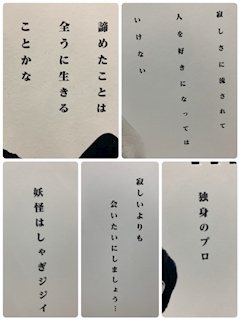 諦めたことは
全うに生きる
ことかな
寂しさに流されて
人を好きになっては
いけない
妖怪はしゃぎジジイ
寂しいよりも
会いたいにしましょう…
独身のプロ